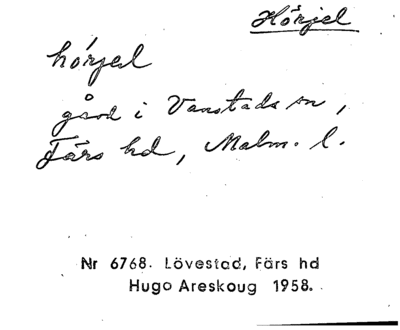 Hörjel
hörjel
gård i Vanstads sn,
Färs hd, Malm. l.
Nr 6768. Lövestad, Färs hd
Hugo Areskoug 1958.